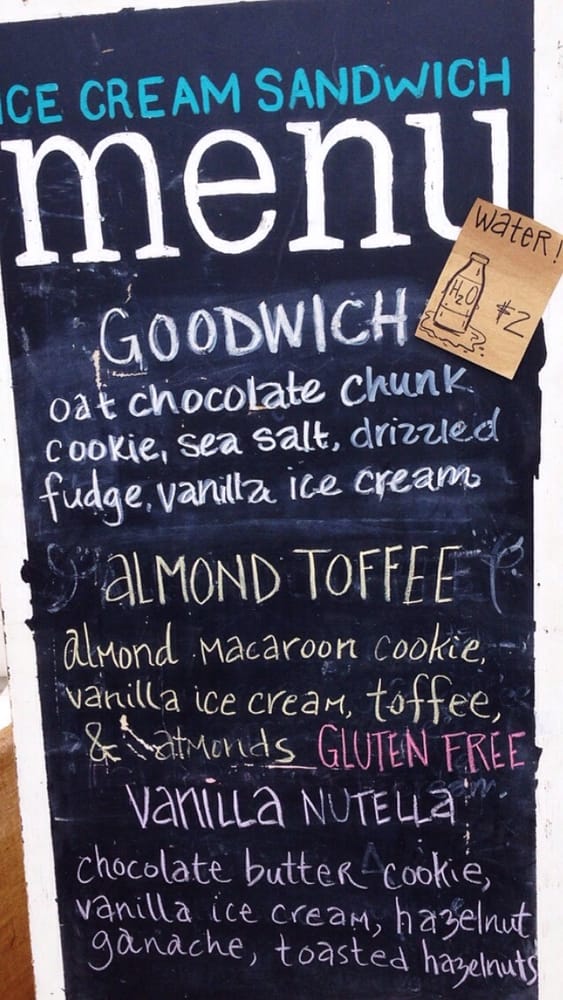 ICE CREAM SANDWICH
menu
Water!
H2O
$2
GOODWICH
oat chocolate chunk
cookie, sea salt, drizzled
fudge, vanilla ice cream
aLMOND TOFFEE
almond macaroon cookie,
vanilla ice cream, toffee,
& almonds GLUTEN FREE
vaniLLa NUTELLA
chocolate butter cookie,
vanilla ice cream, hazelnut
ganache, toasted hazelnuts